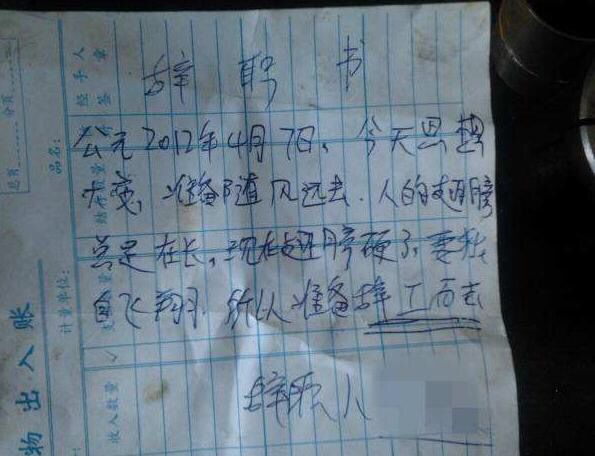 辞职书
公元2012年4月7日，今天思想
大变，准备随风远去．人的翅膀
总是在长，现在翅膀硬了，要独
自飞翔．所以准备辞工而去
辞职人
物出入账
计量单位：
品名：
经手人
签章
结存数量
收入数量
总页
分页